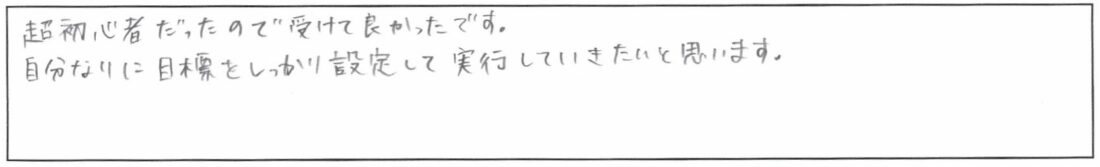 超初心者だったので受けて良かったです。
自分なりに目標をしっかり設定して実行していきたいと思います。